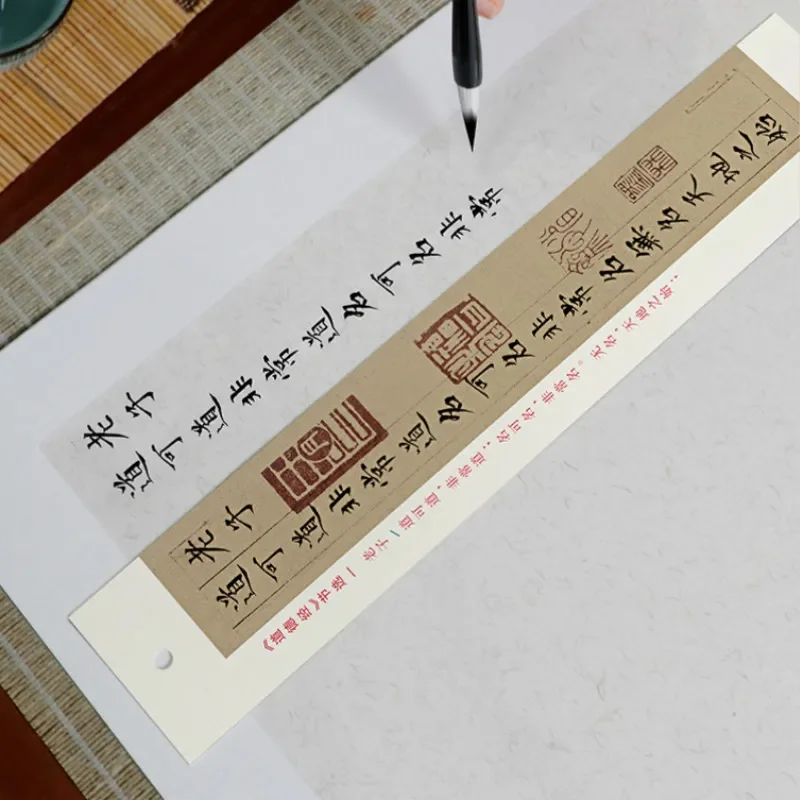 老子
道可道非常道名可名非常
老子
道可道非常道名可名非常名無名天地之始
《道德经》节选一 老子 | 道可道，非常道；名可名，非常名。无名，天地之始；